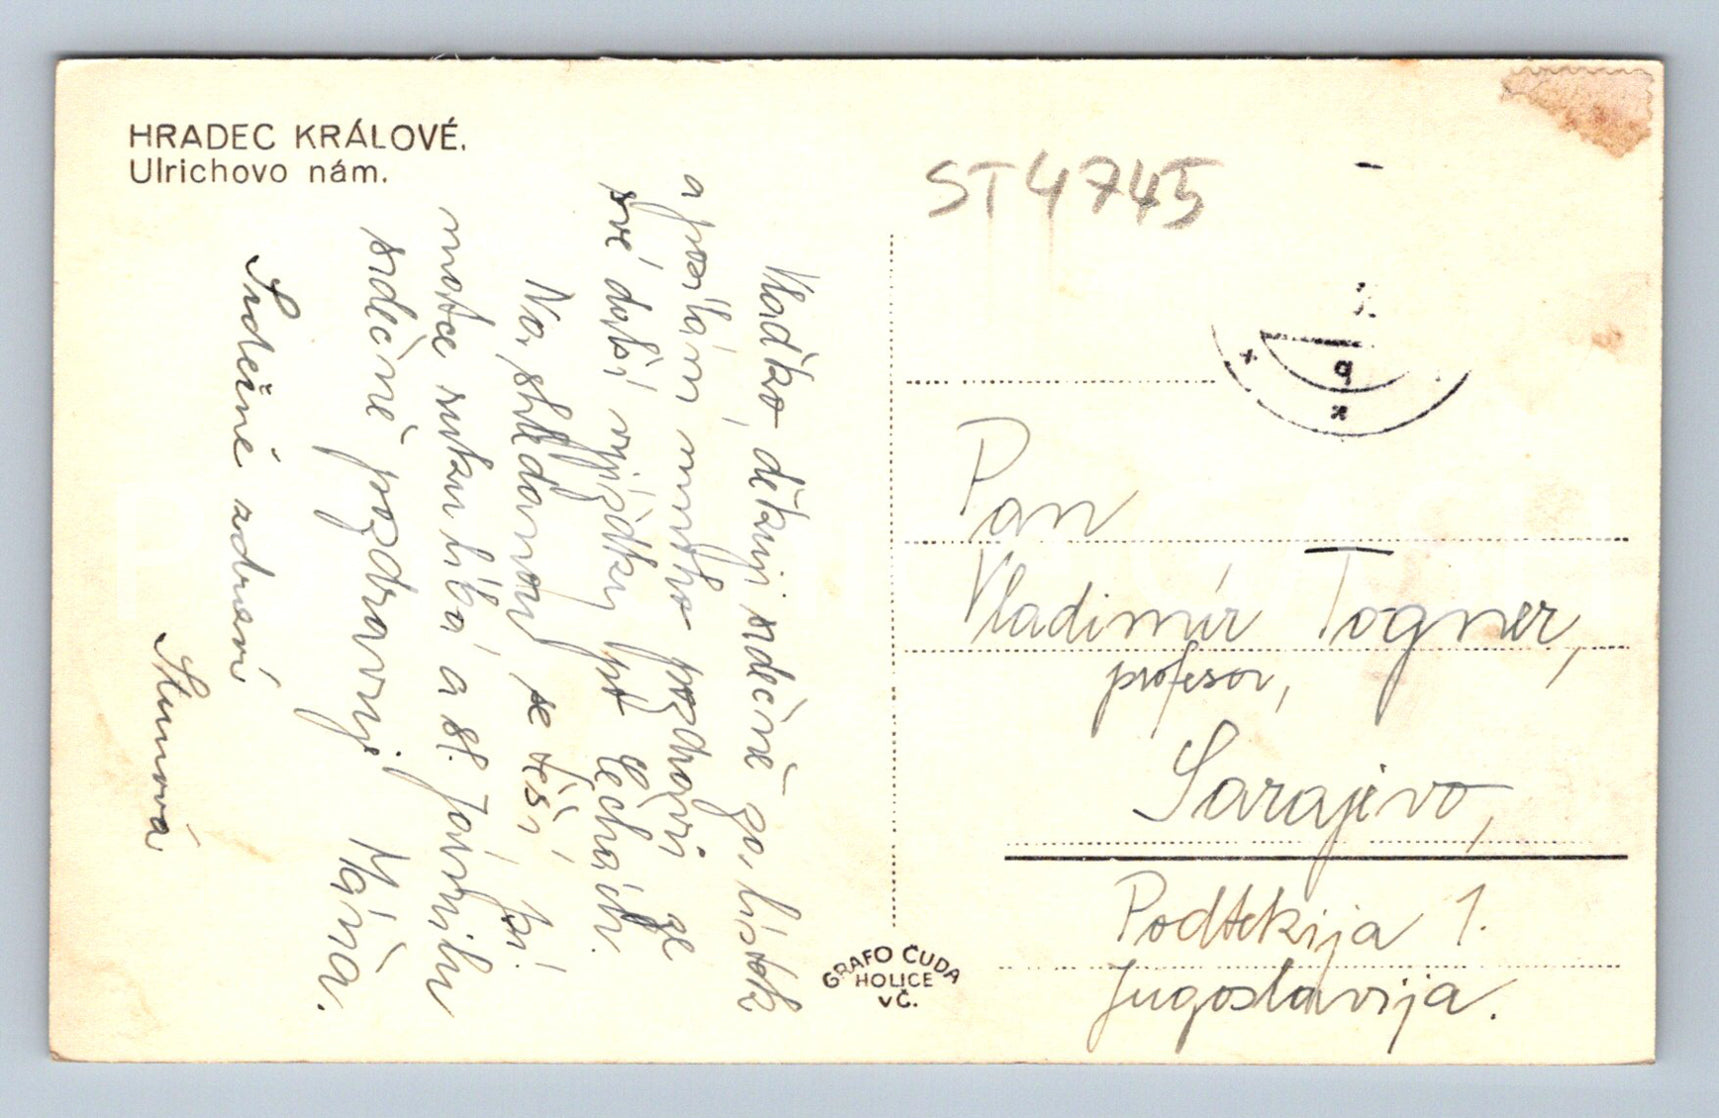 HRADEC KRÁLOVÉ.
Ulrichovo nám.
ST4745
Vlaďko, děkuji srdečně za lístek
a posílám mnoho pozdravů ze
své další vyjížďky po Čechách.
Na shledanou se těší,
matce ruku líbá a sl. Jarmilu
srdečně pozdravuje Máňa.
Srdečně zdraví
Pan
Vladimír Togner,
profesor,
Sarajevo,
Podtekija 1.
Jugoslavija.
GRAFO ČUDA
HOLICE
VČ.